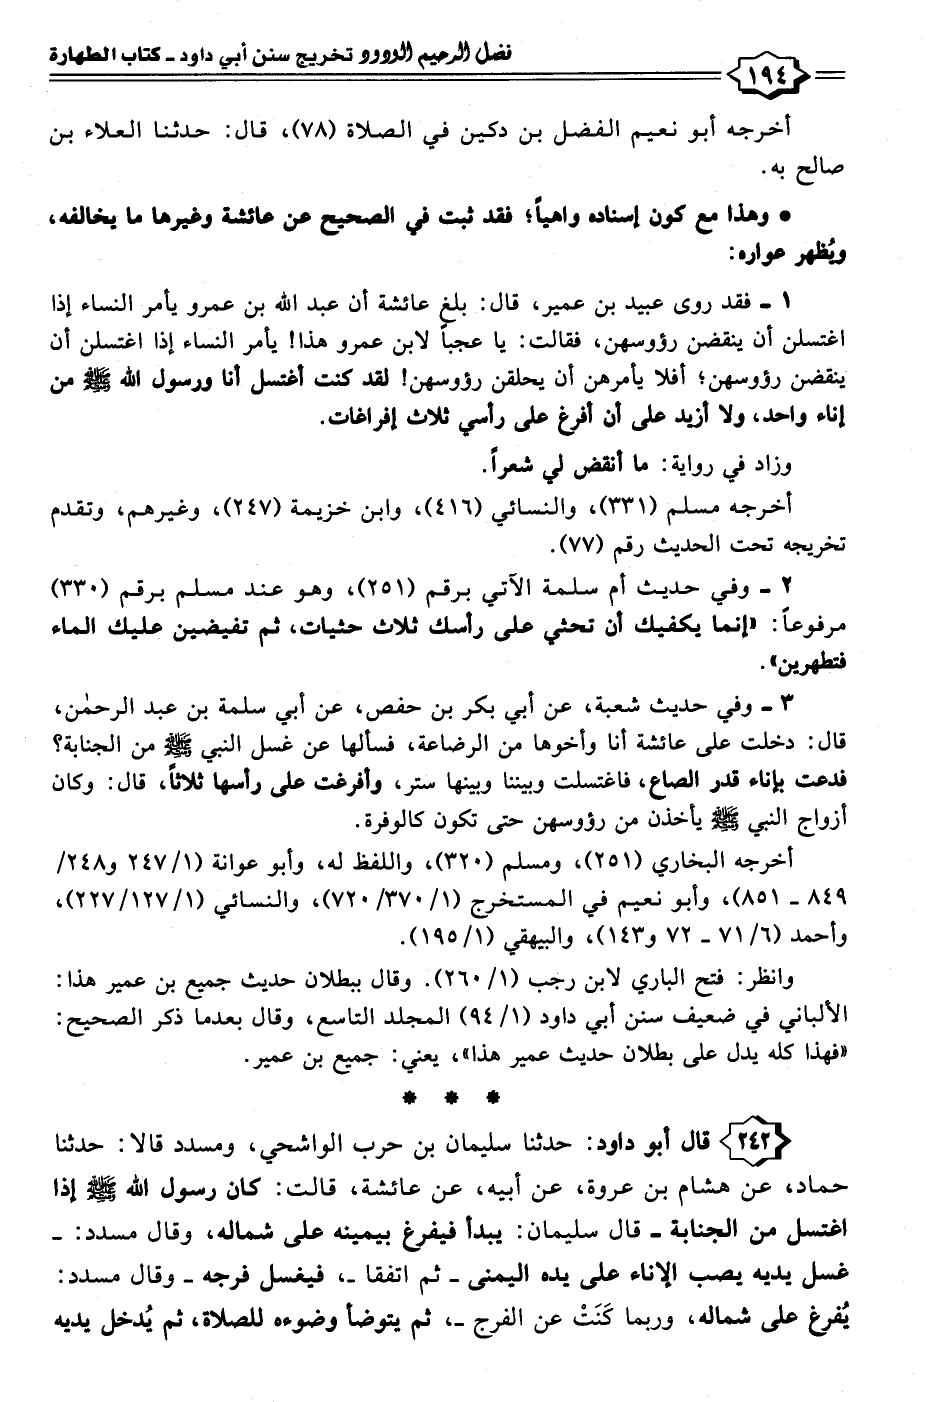 فضل الرحيم الودود تخريج سنن أبي داود - كتاب الطهارة
١٩٤
أخرجه أبو نعيم الفضل بن دكين في الصلاة (٧٨)، قال: حدثنا العلاء بن
صالح به.
• وهذا مع كون إسناده واهياً؛ فقد ثبت في الصحيح عن عائشة وغيرها ما يخالفه،
ويُظهر عواره:
١ - فقد روى عبيد بن عمير، قال: بلغ عائشة أن عبد الله بن عمرو يأمر النساء إذا
اغتسلن أن ينقضن رؤوسهن، فقالت: يا عجباً لابن عمرو هذا! يأمر النساء إذا اغتسلن أن
ينقضن رؤوسهن؛ أفلا يأمرهن أن يحلقن رؤوسهن! لقد كنت أغتسل أنا ورسول الله ﷺ من
إناء واحد، ولا أزيد على أن أفرغ على رأسي ثلاث إفراغات.
وزاد في رواية: ما أنقض لي شعراً.
أخرجه مسلم (٣٣١)، والنسائي (٤١٦)، وابن خزيمة (٢٤٧)، وغيرهم، وتقدم
تخريجه تحت الحديث رقم (٧٧).
٢ - وفي حديث أم سلمة الآتي برقم (٢٥١)، وهو عند مسلم برقم (٣٣٠)
مرفوعاً: «إنما يكفيك أن تحثي على رأسك ثلاث حثيات، ثم تفيضين عليك الماء
فتطهرين».
٣ - وفي حديث شعبة، عن أبي بكر بن حفص، عن أبي سلمة بن عبد الرحمٰن،
قال: دخلت على عائشة أنا وأخوها من الرضاعة، فسألها عن غسل النبي ﷺ من الجنابة؟
فدعت بإناء قدر الصاع، فاغتسلت وبيننا وبينها ستر، وأفرغت على رأسها ثلاثاً، قال: وكان
أزواج النبي ﷺ يأخذن من رؤوسهن حتى تكون كالوفرة.
أخرجه البخاري (٢٥١)، ومسلم (٣٢٠)، واللفظ له، وأبو عوانة (٢٤٧/١ و٢٤٨/
٨٤٩ - ٨٥١)، وأبو نعيم في المستخرج (٧٢٠/٣٧٠/١)، والنسائي (٢٢٧/١٢٧/١)،
وأحمد (٧١/٦ - ٧٢ و١٤٣)، والبيهقي (١٩٥/١).
وانظر: فتح الباري لابن رجب (٢٦٠/١). وقال ببطلان حديث جميع بن عمير هذا:
الألباني في ضعيف سنن أبي داود (٩٤/١) المجلد التاسع، وقال بعدما ذكر الصحيح:
«فهذا كله يدل على بطلان حديث عمير هذا»، يعني: جميع بن عمير.
* * *
٢٤٢ قال أبو داود: حدثنا سليمان بن حرب الواشحي، ومسدد قالا: حدثنا
حماد، عن هشام بن عروة، عن أبيه، عن عائشة، قالت: كان رسول الله ﷺ إذا
اغتسل من الجنابة - قال سليمان: يبدأ فيفرغ بيمينه على شماله، وقال مسدد: -
غسل يديه يصب الإناء على يده اليمنى - ثم اتفقا -، فيغسل فرجه - وقال مسدد:
يُفرغ على شماله، وربما كَنَتْ عن الفرج -، ثم يتوضأ وضوءه للصلاة، ثم يُدخل يديه